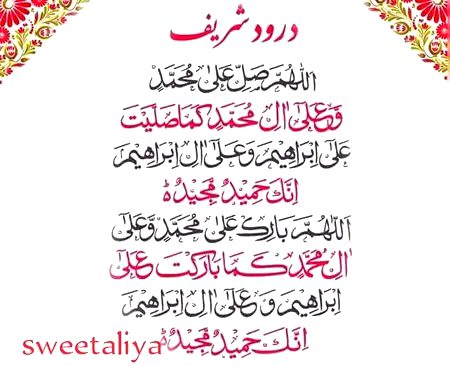 درود شریف
اَللّٰهُمَّ صَلِّ عَلٰی مُحَمَّدٍ
وَّعَلٰٓی اٰلِ مُحَمَّدٍ كَمَا صَلَّيْتَ
عَلٰٓی اِبْرَاهِيْمَ وَعَلٰٓی اٰلِ اِبْرَاهِيْمَ
اِنَّكَ حَمِيْدٌ مَّجِيْدٌ ؕ
اَللّٰهُمَّ بَارِكْ عَلٰی مُحَمَّدٍ وَّعَلٰٓی
اٰلِ مُحَمَّدٍ كَمَا بَارَكْتَ عَلٰٓی
اِبْرَاهِيْمَ وَ عَلٰٓی اٰلِ اِبْرَاهِيْمَ
اِنَّكَ حَمِيْدٌ مَّجِيْدٌ ؕ
sweetaliya